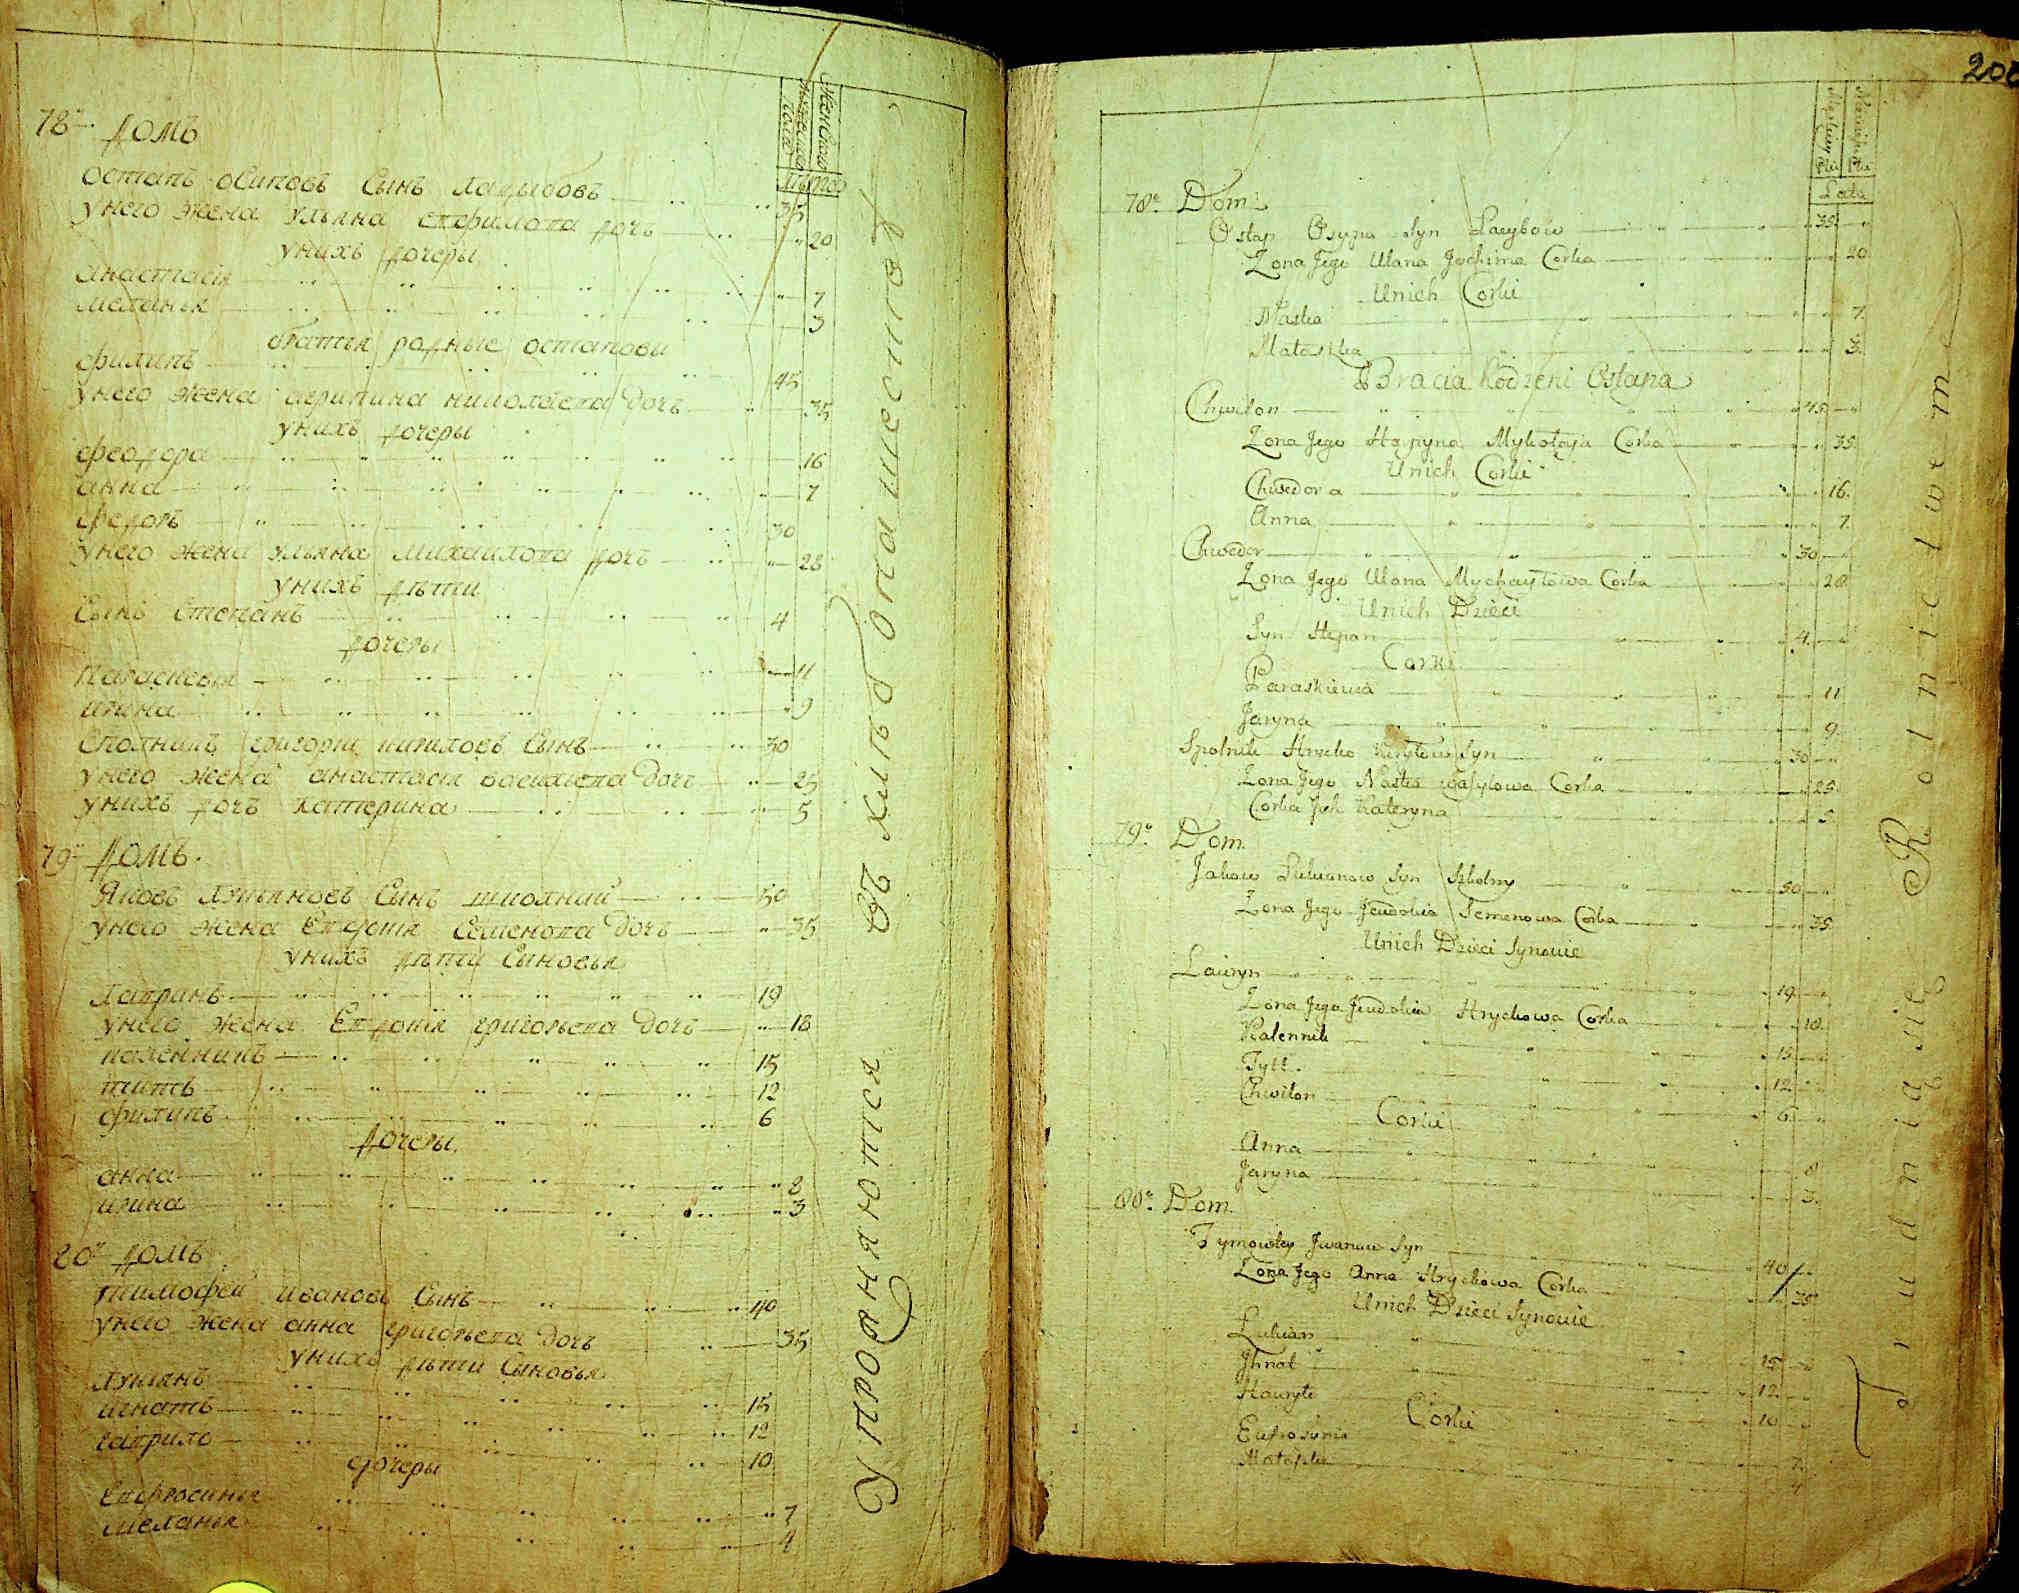 Мужеска пола
Женскаго
Лѣта
78й домъ
Остапъ Осиповъ Сынъ Лацыбовъ 35
У него жена Ульяна Ефимова дочь 20
У нихъ дочеры
Анастасія 7
Меланья 3
братья родные Остапови
Филипъ 45
У него жена Агрипина Николаева дочь 35
У нихъ дочеры
Феодора 16
Анна 7
Федоръ 30
У него жена Ульяна Михайлова дочь 28
У нихъ дѣти
Сынъ Степанъ 4
дочеры
Параскевья 11
Ирина 9
Сполникъ Григорій Кириловъ Сынъ 30
У него жена Анастасія Василева дочь 25
У нихъ дочь Катерина 5
79й домъ.
Яковъ Лукьяновъ Сынъ школний 50
У него жена Евдокія Семенова дочь 35
У нихъ дѣти Сыновья
Лавринъ 19
У него жена Евдокія Григорьева дочь 18
Каленникъ 15
Титъ 12
Филипъ 6
дочеры
Анна 8
Ирина 3
80й домъ
Тимофей Ивановъ Сынъ 40
У него жена Анна Григорьева дочь 35
У нихъ дѣти Сыновья
Лукянъ 15
Игнатъ 12
Гаврило 10
дочеры
Евфросинья 7
Меланья 4
Упражняются въ хлѣбопашествѣ
200
Męskiey Płci
Płci
Lata
78o. Dom
Ostap Osypu Syn Lacybow 35
Zona Jego Ulana Jochima Corka 20
Unich Corki
Nastia 7
Małaszka 3
Bracia Rodzeni Ostapa
Chwilon 45
Zona Jego Hapyna Mykołaja Corka 35
Unich Corki
Chwedora 16
Anna 7
Chwedor 30
Zona Jego Ulana Mychayłowa Corka 28
Unich Dzieci
Syn Stepan 4
Corki
Paraskiewia 11
Jaryna 9
Spolnik Hrycko Kiryłow Syn 30
Zona Jego Nastia Wasylowa Corka 25
Corka Jch Kateryna 5
79o. Dom.
Jakow Lukianow Syn Szkolny 50
Zona Jego Jeudokia Semenowa Corka 35
Unich Dzieci Synowie
Lawryn 19
Zona Jego Jeudokia Hryckowa Corka 18
Kalennik 15
Tytt 12
Chwilon 6
Corki
Anna 8
Jaryna 3
80o. Dom.
Tymowtey Jwanow Syn 40
Zona Jego Anna Hryckowa Corka 35
Unich Dzieci Synowie
Lukian 15
Jhnat 12
Hawryło 10
Corki
Eufrosinia 7
Małaszka 4
Trudnią się Rolnictwem